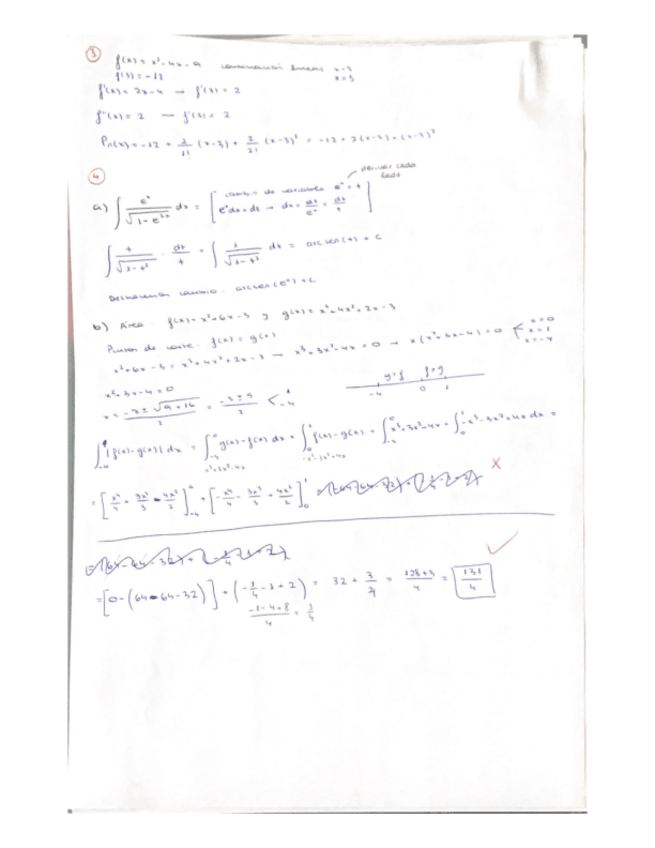 ③
f(x) = x² - 4x - 9
x = 3
f(3) = -12
f'(x) = 2x - 4 → f'(3) = 2
f''(x) = 2 → f'(3) = 2
Pn(x) = -12 + 2/1! (x-3) + 2/2! (x-3)² = -12 + 2(x-3) + (x-3)²
④
derivar cada lado
a) ∫ eˣ/√(1 - e²ˣ) dx = [ cambio de variable eˣ = t
eˣ dx = dt → dx = dt/eˣ = dt/t ]
∫ t/√(1-t²) · dt/t = ∫ 1/√(1-t²) dt = arcsen(t) + c
cambio. arcsen(eˣ) + c
b) Área f(x) = x² + 6x - 3 y g(x) = x³ + 4x² + 2x - 3
Puntos de corte. f(x) = g(x)
x² + 6x - 3 = x³ + 4x² + 2x - 3 → x³ + 3x² - 4x = 0 → x(x² + 3x - 4) = 0 < x = 0 x = 1 x = -4
x² + 3x - 4 = 0
x = (-3 ± √(9 + 16))/2 = (-3 ± 5)/2 < 1 -4
g>f f>g
-4 0 1
∫₋₄¹ |f(x) - g(x)| dx = ∫₋₄⁰ g(x) - f(x) dx + ∫₀¹ f(x) - g(x) = ∫₋₄⁰ x³ + 3x² - 4x + ∫₀¹ -x³ - 3x² + 4x dx =
x³ + 3x² - 4x -x³ - 3x² + 4x
= [x⁴/4 + 3x³/3 - 4x²/2]₋₄⁰ + [-x⁴/4 - 3x³/3 + 4x²/2]₀¹
= [0 - (64 - 64 - 32)] + (-1/4 - 1 + 2) = 32 + 3/4 = (128 + 3)/4 = 131/4
(-1 - 4 + 8)/4 = 3/4